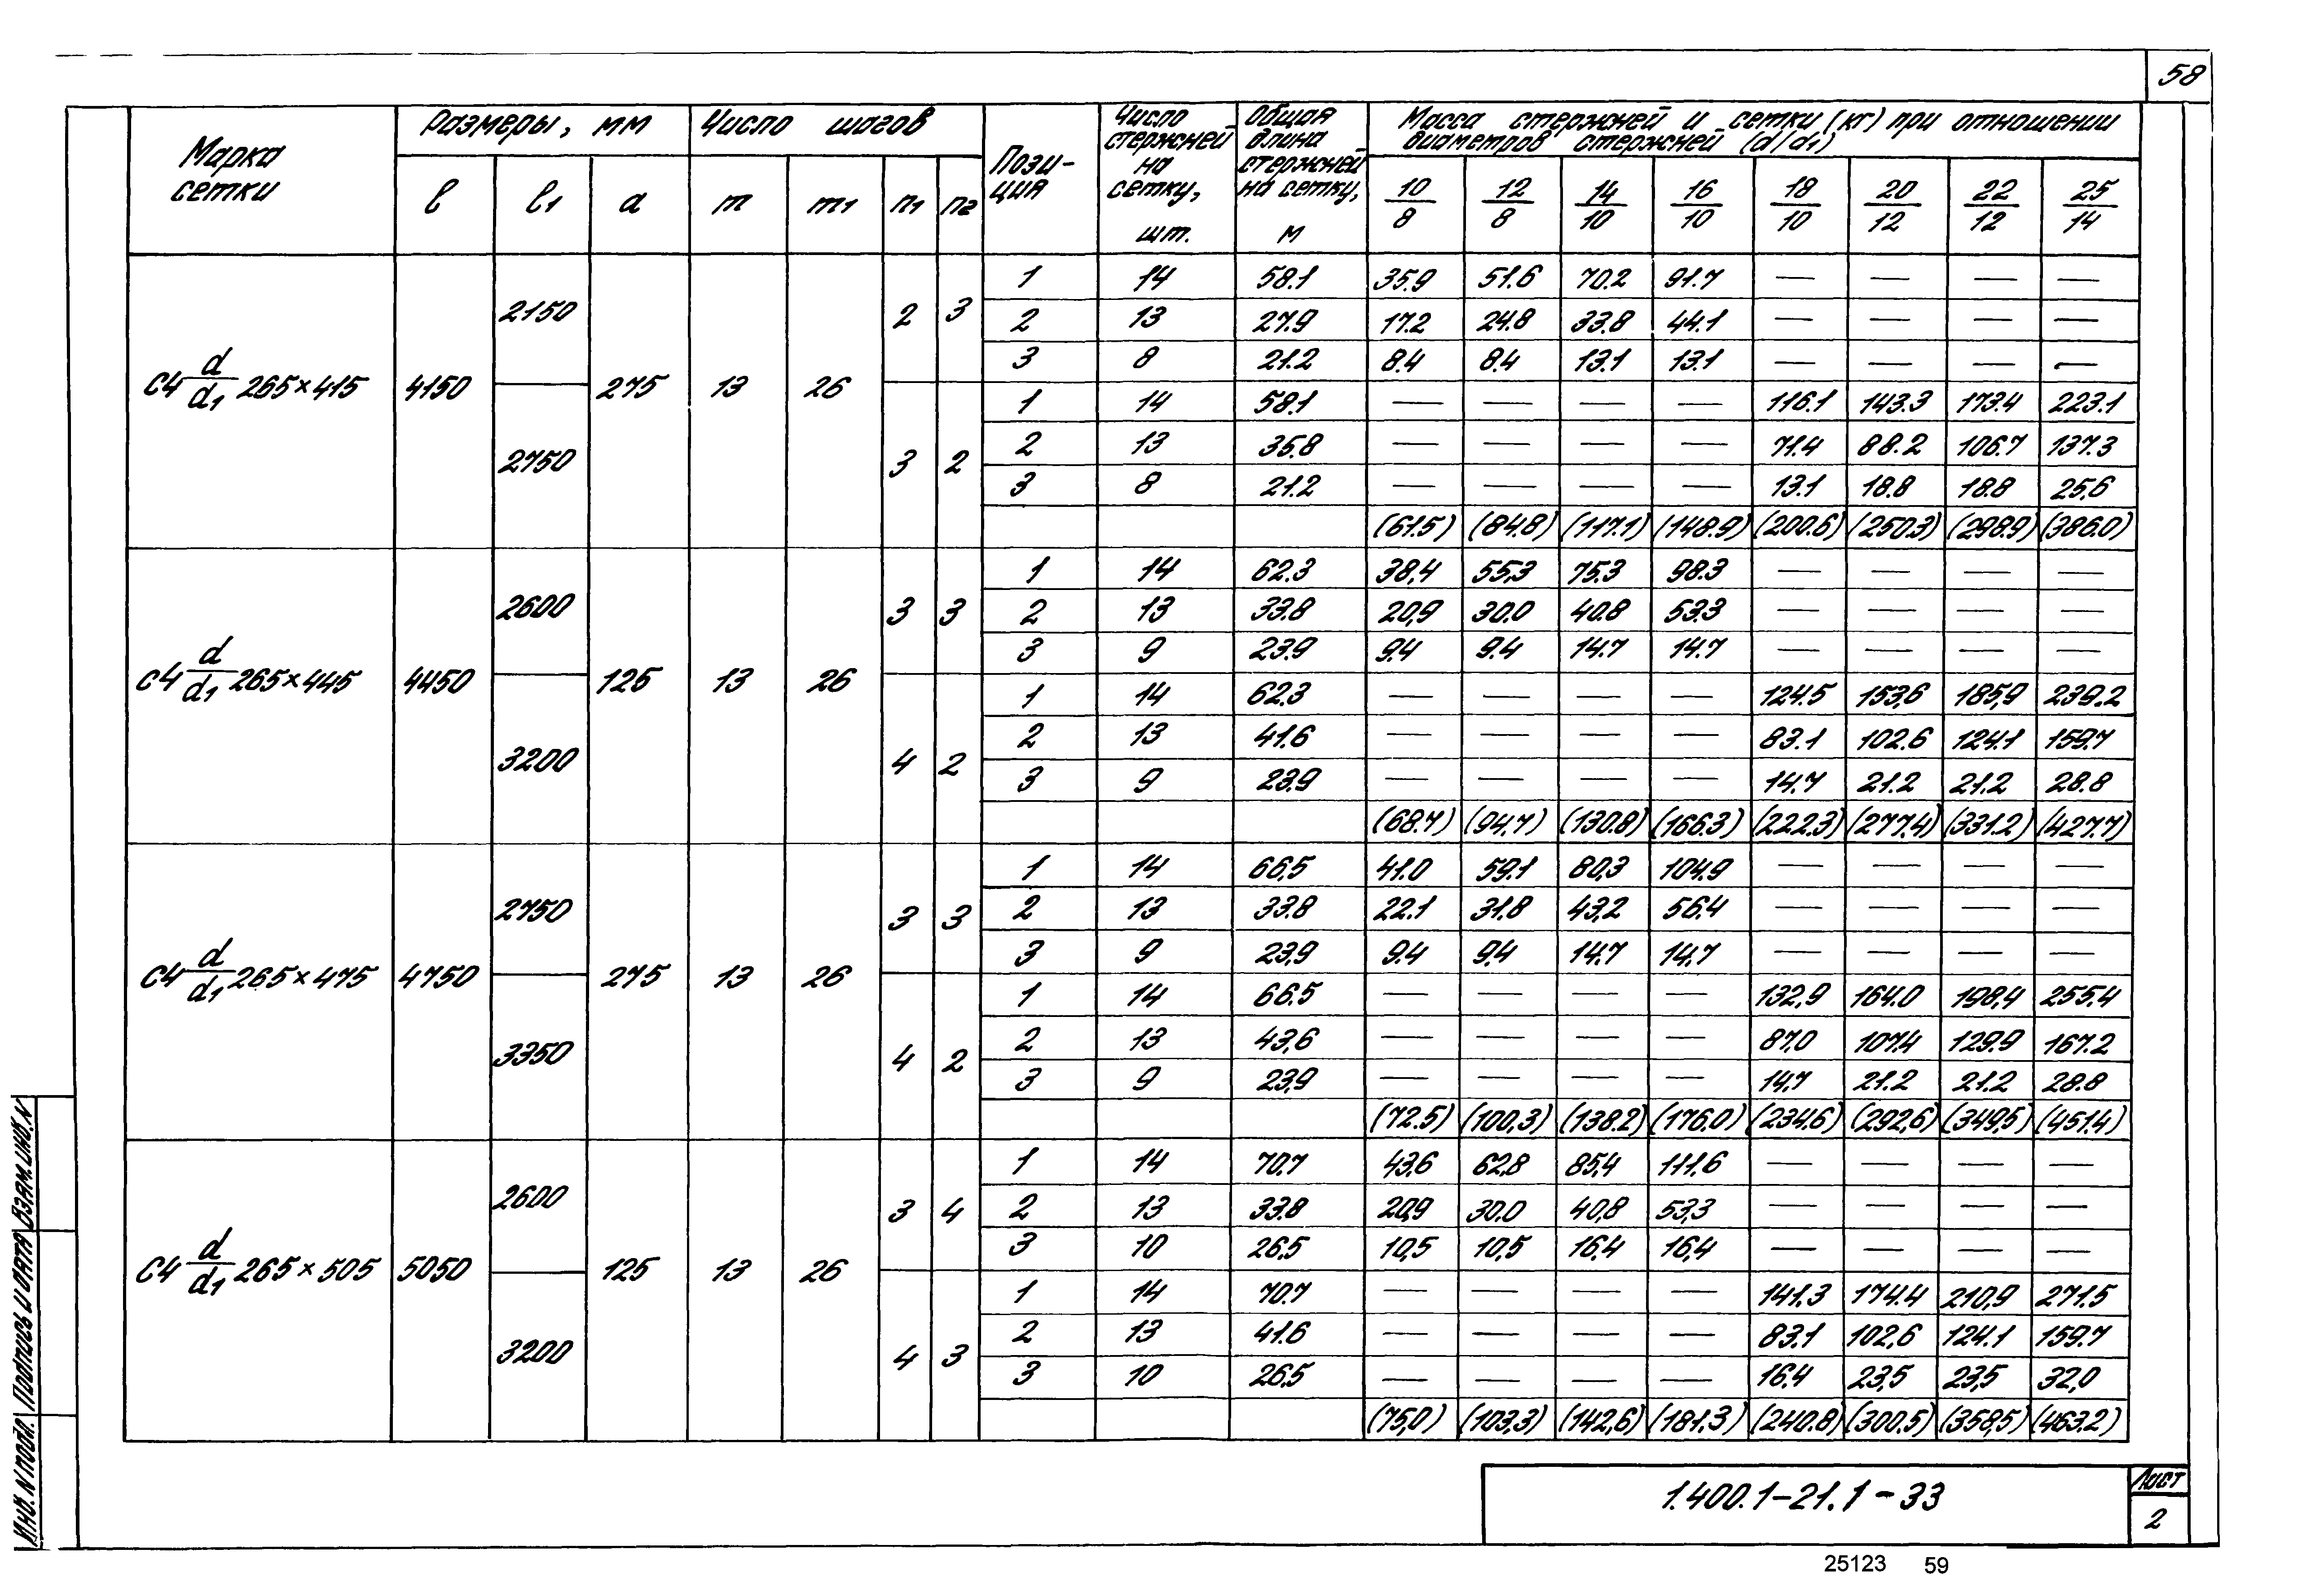 58
Марка сетки | Размеры, мм | Число шагов | Пози-ция | Число стержней на сетку, шт. | Общая длина стержней на сетку, м | Масса стержней и сетки (кг) при отношении диаметров стержней (d/d1)
l | l1 | a | m | m1 | n1 | n2 | 10/8 | 12/8 | 14/10 | 16/10 | 18/10 | 20/12 | 22/12 | 25/14
С4 d/d1 265×415 | 4150 | 275 | 13 | 26
2150 | 2 | 3
1 | 14 | 58.1 | 35.9 | 51.6 | 70.2 | 91.7 | — | — | — | —
2 | 13 | 27.9 | 17.2 | 24.8 | 33.8 | 44.1 | — | — | — | —
3 | 8 | 21.2 | 8.4 | 8.4 | 13.1 | 13.1 | — | — | — | —
2750 | 3 | 2
1 | 14 | 58.1 | — | — | — | — | 116.1 | 143.3 | 173.4 | 223.1
2 | 13 | 35.8 | — | — | — | — | 71.4 | 88.2 | 106.7 | 137.3
3 | 8 | 21.2 | — | — | — | — | 13.1 | 18.8 | 18.8 | 25,6
(61.5) | (84.8) | (117.1) | (148.9) | (200.6) | (250.3) | (298.9) | (386.0)
С4 d/d1 265×445 | 4450 | 125 | 13 | 26
2600 | 3 | 3
1 | 14 | 62.3 | 38,4 | 55,3 | 75.3 | 98.3 | — | — | — | —
2 | 13 | 33.8 | 20,9 | 30.0 | 40.8 | 53.3 | — | — | — | —
3 | 9 | 23.9 | 9.4 | 9.4 | 14.7 | 14.7 | — | — | — | —
3200 | 4 | 2
1 | 14 | 62.3 | — | — | — | — | 124.5 | 153,6 | 185,9 | 239.2
2 | 13 | 41.6 | — | — | — | — | 83.1 | 102.6 | 124.1 | 159.7
3 | 9 | 23.9 | — | — | — | — | 14,7 | 21.2 | 21.2 | 28.8
(68.7) | (94.7) | (130.8) | (166.3) | (222.3) | (277.4) | (331.2) | (427.7)
С4 d/d1 265×475 | 4750 | 275 | 13 | 26
2750 | 3 | 3
1 | 14 | 66,5 | 41.0 | 59.1 | 80,3 | 104,9 | — | — | — | —
2 | 13 | 33.8 | 22.1 | 31.8 | 43,2 | 56.4 | — | — | — | —
3 | 9 | 23,9 | 9.4 | 9,4 | 14.7 | 14,7 | — | — | — | —
3350 | 4 | 2
1 | 14 | 66.5 | — | — | — | — | 132,9 | 164.0 | 198,4 | 255.4
2 | 13 | 43,6 | — | — | — | — | 87,0 | 107.4 | 129.9 | 167.2
3 | 9 | 23,9 | — | — | — | — | 14,7 | 21.2 | 21.2 | 28.8
(72.5) | (100,3) | (138.2) | (176.0) | (234.6) | (292,6) | (349,5) | (451.4)
С4 d/d1 265×505 | 5050 | 125 | 13 | 26
2600 | 3 | 4
1 | 14 | 70,7 | 43,6 | 62,8 | 85,4 | 111.6 | — | — | — | —
2 | 13 | 33.8 | 20,9 | 30.0 | 40,8 | 53,3 | — | — | — | —
3 | 10 | 26.5 | 10,5 | 10,5 | 16,4 | 16,4 | — | — | — | —
3200 | 4 | 3
1 | 14 | 70.7 | — | — | — | — | 141.3 | 174.4 | 210,9 | 271.5
2 | 13 | 41.6 | — | — | — | — | 83,1 | 102,6 | 124.1 | 159.7
3 | 10 | 26.5 | — | — | — | — | 16.4 | 23,5 | 23,5 | 32,0
(75,0) | (103,3) | (142,6) | (181.3) | (240.8) | (300.5) | (358,5) | (463.2)
Инв. N подл. | Подпись и дата | Взам. инв. N
1.400.1-21.1-33
Лист
2
25123 59